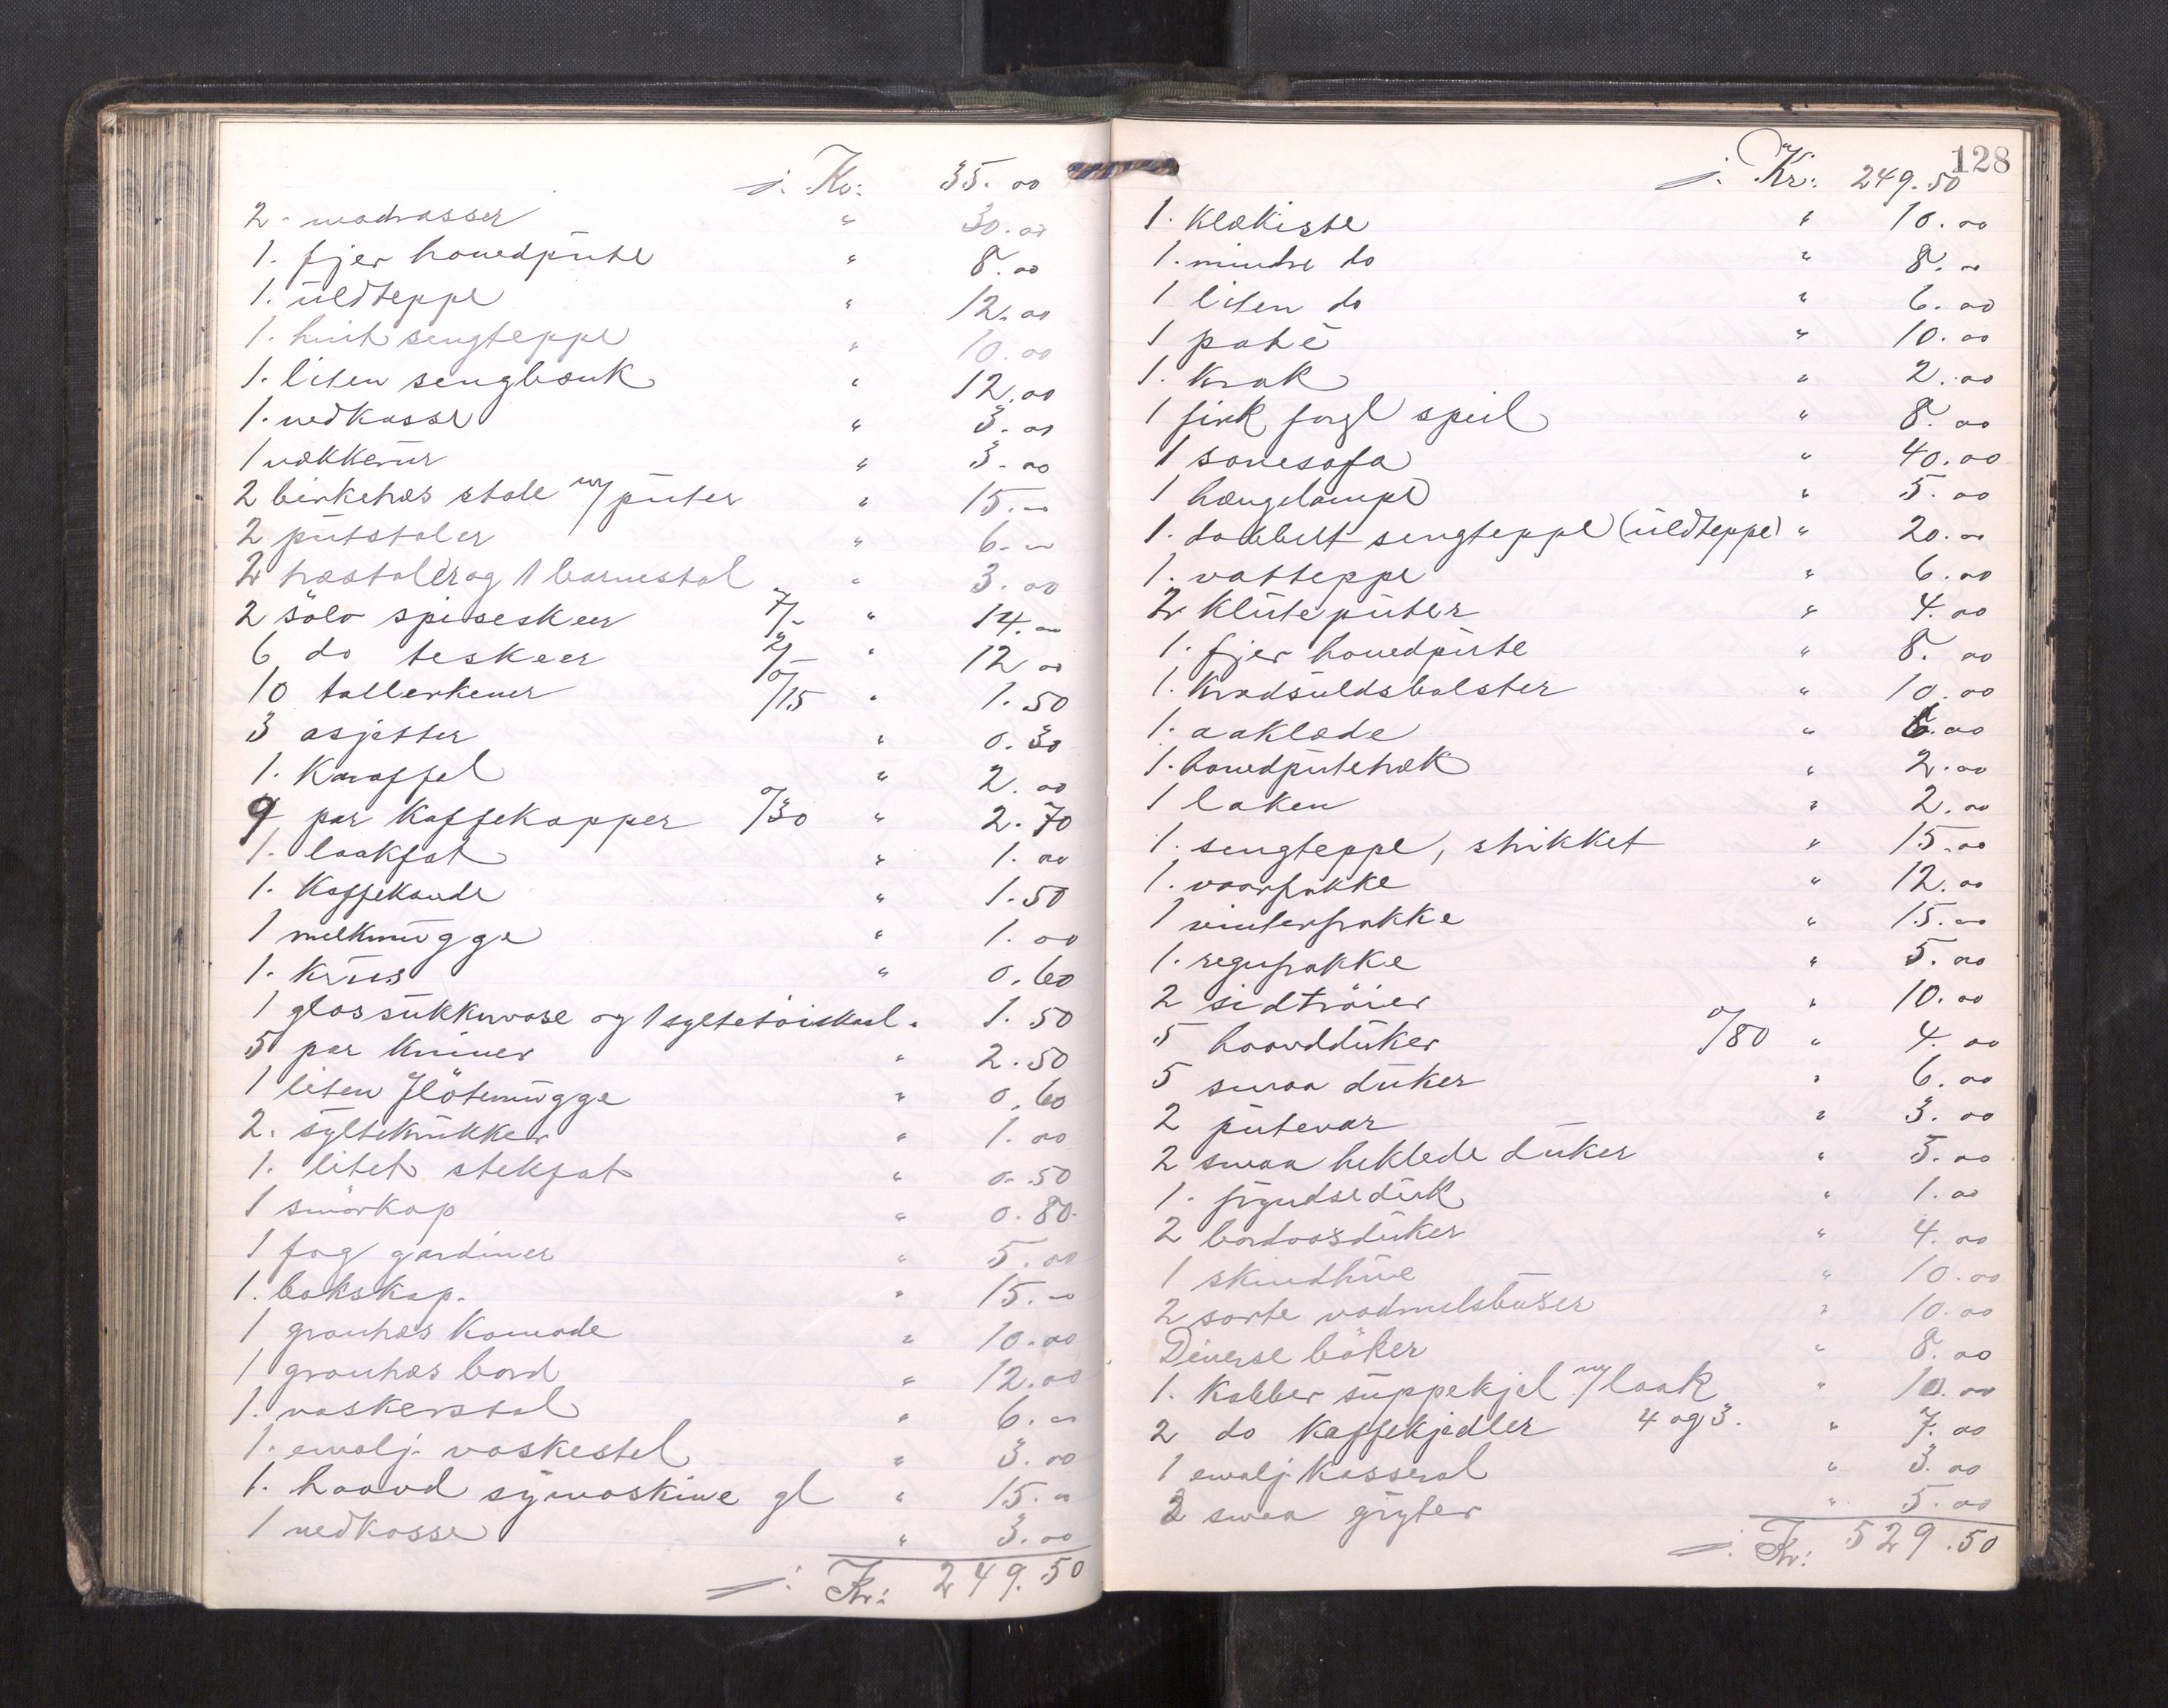 Kr: 35.00
2. madrasser " 30.00
1. fjer hovedpute " 8.00
1. uldteppe " 12.00
1. hvit sengteppe " 10.00
1. liten sengbænk " 12.00
1. vedkasse " 3.00
1 vækkerur " 3.00
2 birketræs stole m/ puter " 15.00
2 putstoler " 6.00
2 træstoler og 1 barnestol " 3.00
2 sölv spiseskeer 7/- " 14.00
6 do teskeer 2/- " 12.00
10 tallerkener o/15 " 1.50
3 asjetter " 0.30
1. Karaffel " 2.00
9 par Kaffekopper o/30 " 2.70
1. laakfat " 1.00
1. Kaffekande " 1.50
1 melkmugge " 1.00
1. Krus " 0.60
1 glassukkervase og 1 syltetöiskaal " 1.50
5 par Kniver " 2.50
1 liten flötemugge " 0.60
2. syltekrukker " 1.00
1. litet stekfat " 0.50
1 smörkop " 0.80
1 fag gardiner " 5.00
1. bokskap. " 15.00
1 grantræs Komode " 10.00
1 grantræs bord " 12.00
1. vaskerstol " 6.00
1. emalj. vaskestel " 3.00
1. haand symaskine gl " 15.00
1 vedkasse " 3.00
Kr: 249.50
128
Kr: 249.50
1. Klækiste " 10.00
1. mindre do " 8.00
1 liten do " 6.00
1 " 10.00
1. Krak " 2.00
1 firk forgl speil " 8.00
1 sovesofa " 40.00
1 hængelampe " 5.00
1. dobbelt sengteppe (uldteppe) " 20.00
1. vatteppe " 6.00
2 Kluteputer " 4.00
1. fjer hovedpute " 8.00
1. Kradsuldsbolster " 10.00
1. aaklæde " 6.00
1. hovedputetræk " 2.00
1 laken " 2.00
1. sengteppe, strikket " 15.00
1. vaarfrakke " 12.00
1 vinterfrakke " 15.00
1. regnfrakke " 5.00
2 sidtröier " 10.00
5 haandduker o/80 " 4.00
5 smaa duker " 6.00
2 putevar " 3.00
2 smaa heklede duker " 5.00
1. fryndseduk " 1.00
2 bordvoxduker " 4.00
1 skindhue " 10.00
2 sorte vadmelsbuxer " 10.00
Diverse böker " 8.00
1. Kobber suppekjel m/ laak " 10.00
2 do Kaffekjedler 4 og 3. " 7.00
1 emalj. Kasserol " 3.00
2 smaa gryter " 5.00
Kr: 529.50